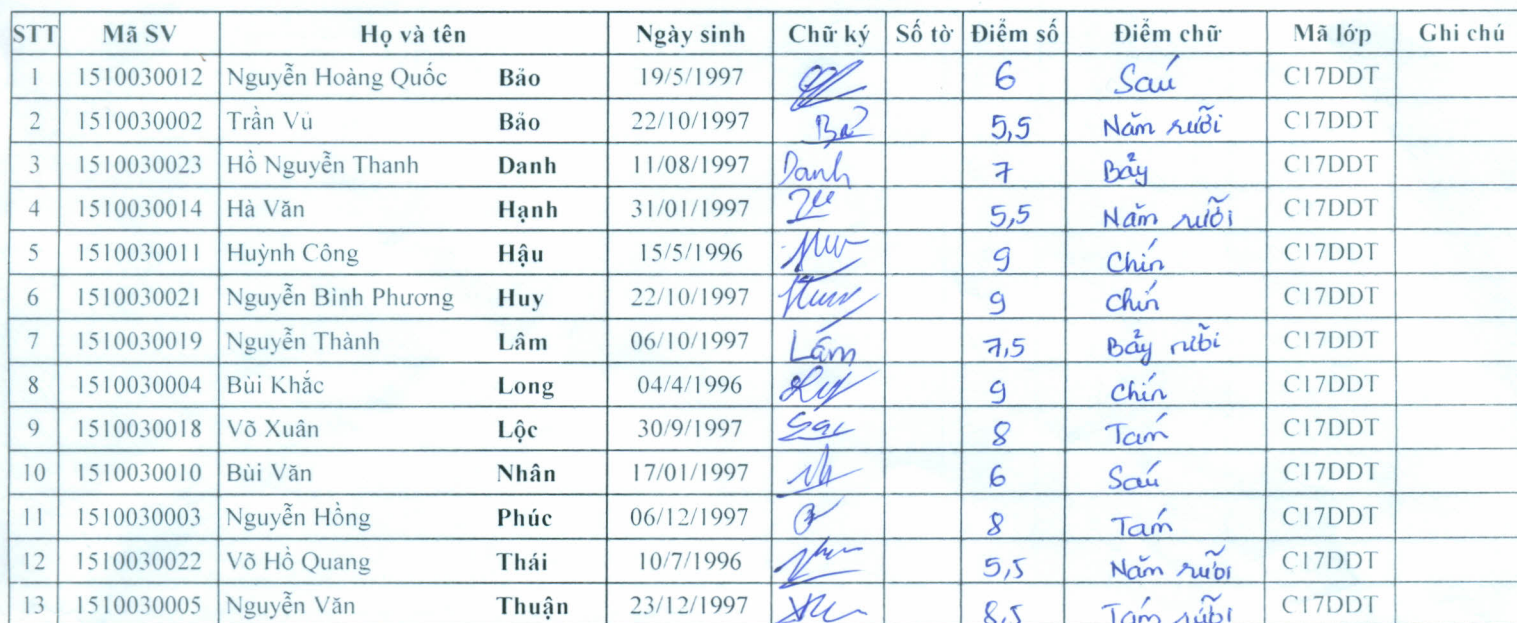 STT Mã SV Họ và tên Ngày sinh Chữ ký Số tờ Điểm số Điểm chữ Mã lớp Ghi chú
1 1510030012 Nguyễn Hoàng Quốc Bảo 19/5/1997 6 Sáu C17DDT
2 1510030002 Trần Vũ Bảo 22/10/1997 5,5 Năm rưỡi C17DDT
3 1510030023 Hồ Nguyễn Thanh Danh 11/08/1997 Danh 7 Bảy C17DDT
4 1510030014 Hà Văn Hạnh 31/01/1997 5,5 Năm rưỡi C17DDT
5 1510030011 Huỳnh Công Hậu 15/5/1996 9 Chín C17DDT
6 1510030021 Nguyễn Bình Phương Huy 22/10/1997 9 Chín C17DDT
7 1510030019 Nguyễn Thành Lâm 06/10/1997 Lâm 7,5 Bảy rưỡi C17DDT
8 1510030004 Bùi Khắc Long 04/4/1996 9 Chín C17DDT
9 1510030018 Võ Xuân Lộc 30/9/1997 8 Tám C17DDT
10 1510030010 Bùi Văn Nhân 17/01/1997 6 Sáu C17DDT
11 1510030003 Nguyễn Hồng Phúc 06/12/1997 8 Tám C17DDT
12 1510030022 Võ Hồ Quang Thái 10/7/1996 5,5 Năm rưỡi C17DDT
13 1510030005 Nguyễn Văn Thuận 23/12/1997 8,5 Tám rưỡi C17DDT